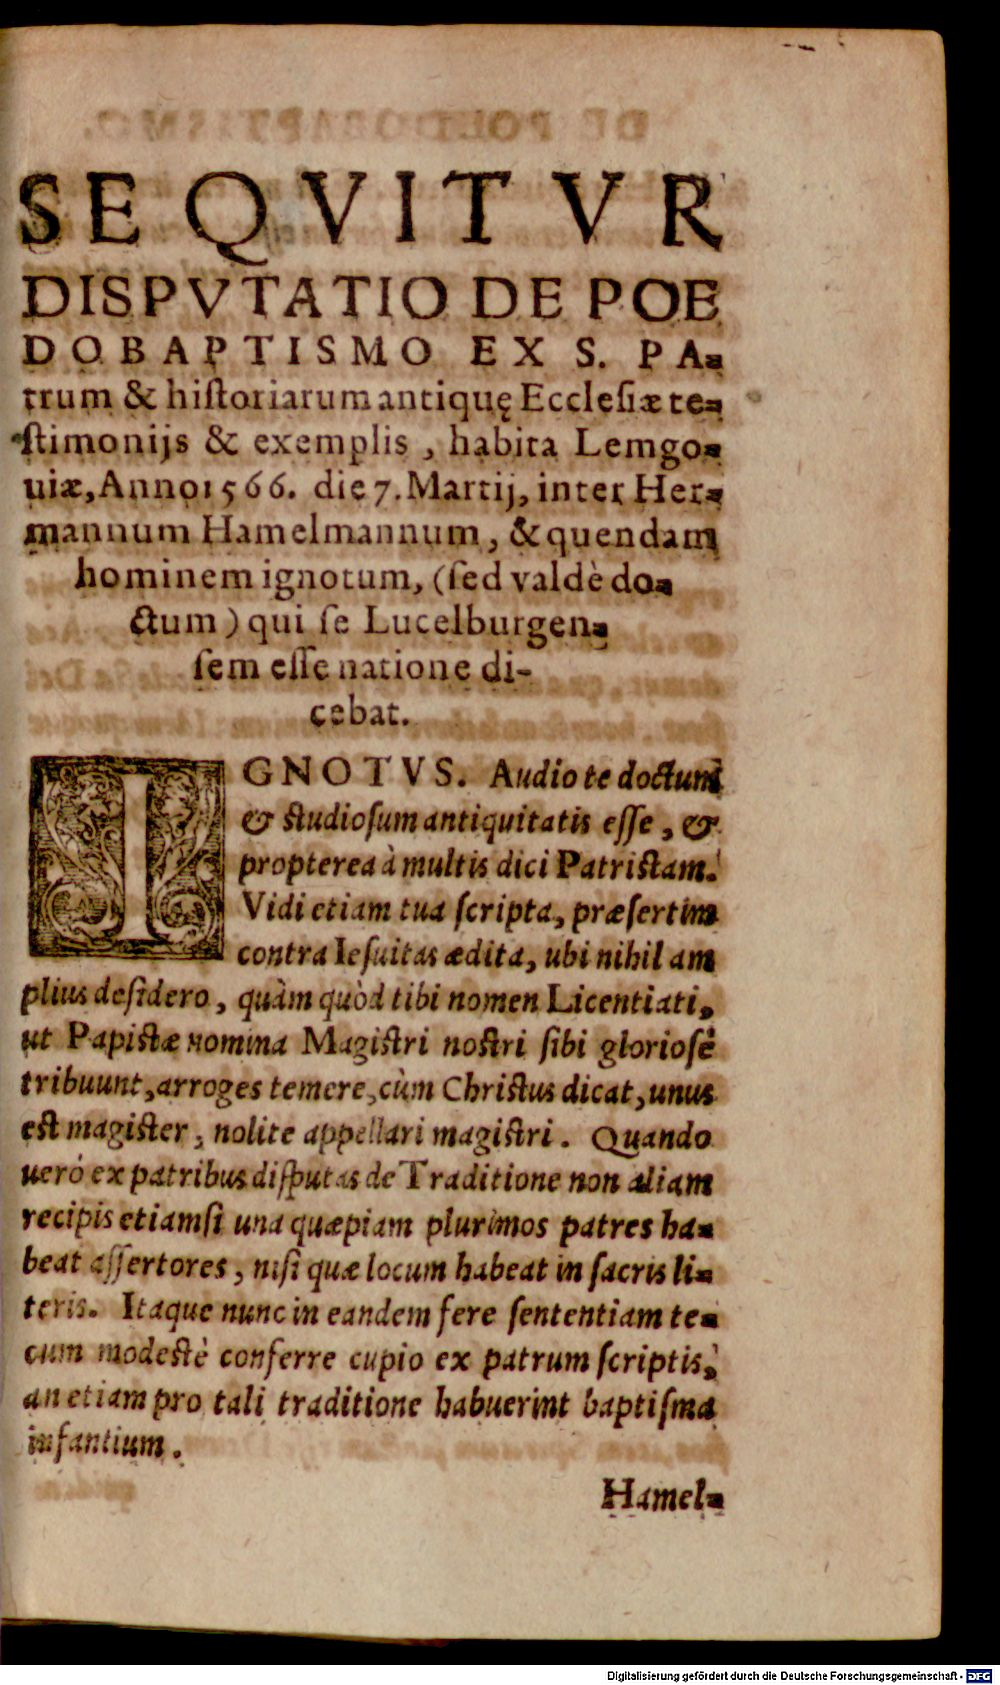 SEQVITVR
DISPVTATIO DE POE
DOBAPTISMO EX S. PA-
trum & historiarum antiquę Ecclesiæ te-
stimonijs & exemplis, habita Lemgo-
uiæ, Anno 1566. die 7. Martij, inter Her-
mannum Hamelmannum, & quendam
hominem ignotum, (sed valdè do-
ctum) qui se Lucelburgen-
sem esse natione di-
cebat.
IGNOTVS. Audio te doctum
& studiosum antiquitatis esse, &
propterea à multis dici Patristam.
Vidi etiam tua scripta, præsertim
contra Iesuitas ædita, ubi nihil am
plius desidero, quàm quòd tibi nomen Licentiati,
ut Papistæ nomina Magistri nostri sibi gloriosè
tribuunt, arroges temere, cùm Christus dicat, unus
est magister, nolite appellari magistri. Quando
uerò ex patribus disputas de Traditione non aliam
recipis etiamsi una quæpiam plurimos patres ha-
beat assertores, nisi quæ locum habeat in sacris li-
teris. Itaque nunc in eandem fere sententiam te-
cum modestè conferre cupio ex patrum scriptis,
an etiam pro tali traditione habuerint baptisma
infantium.
Hamel-
Digitalisierung gefördert durch die Deutsche Forschungsgemeinschaft - DFG